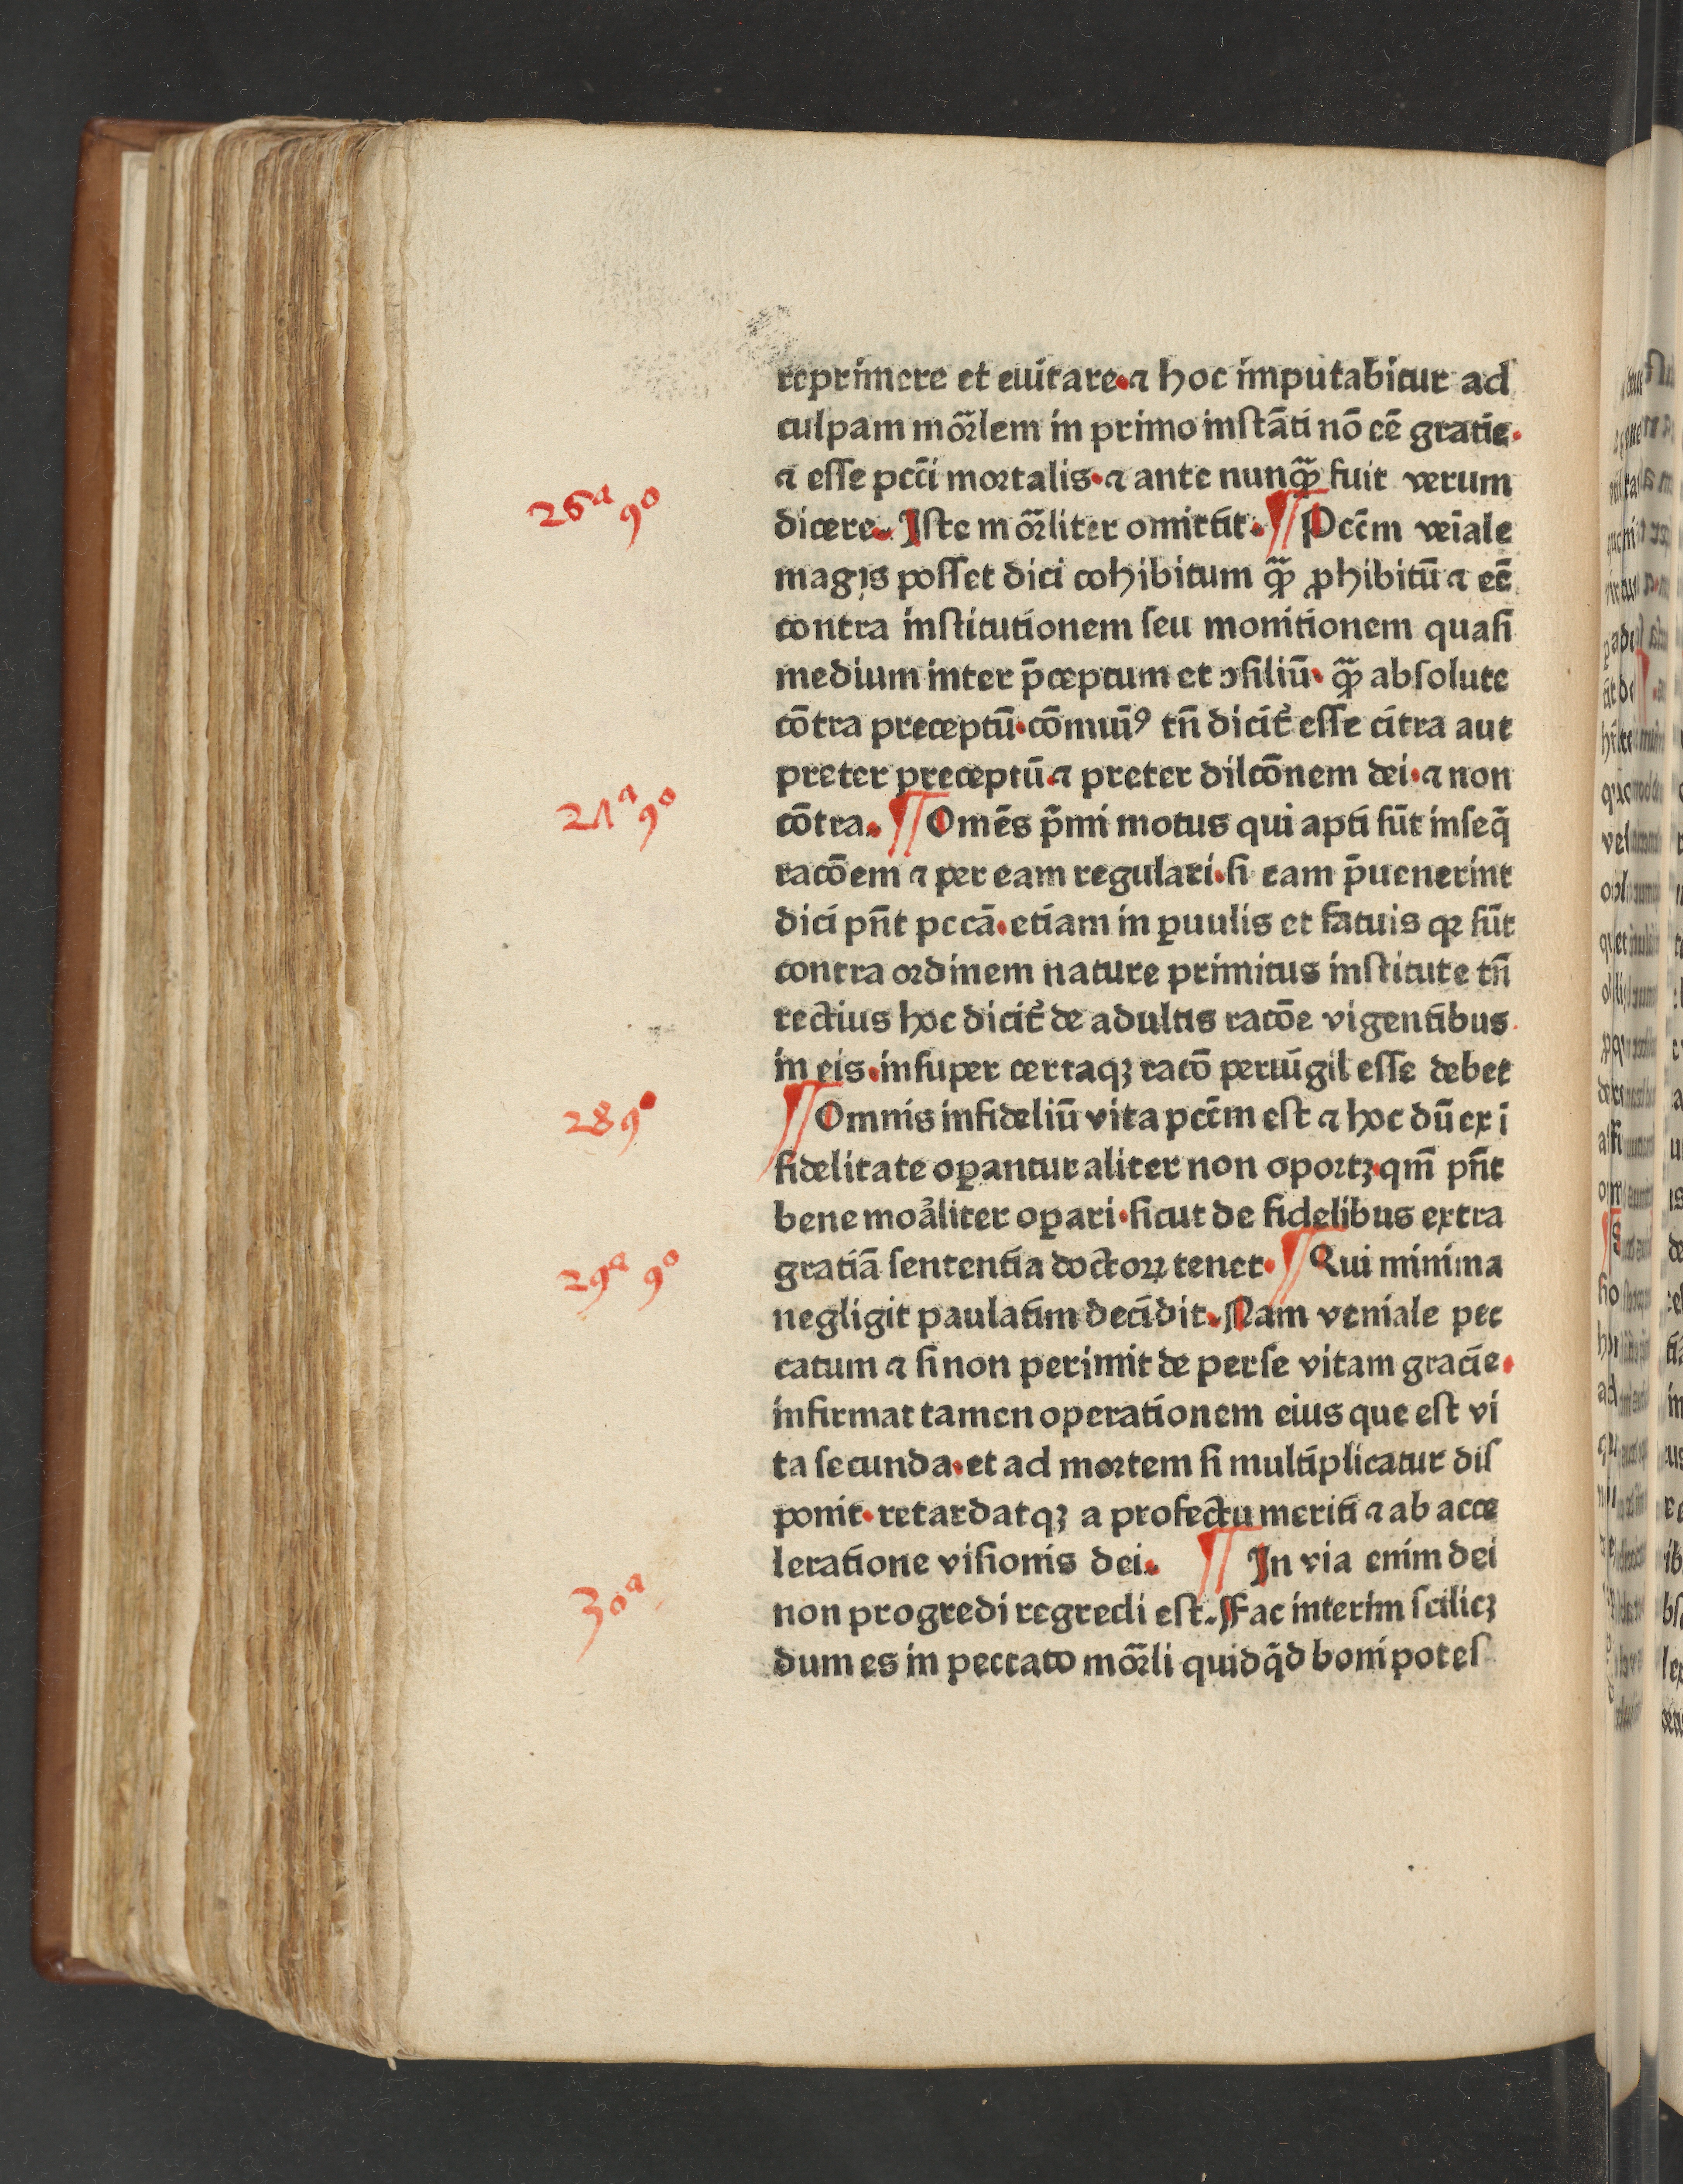 reprimere et euitare·⁊ hoc imputabitur ad
culpam mor̃lem in primo instāti nō eē gratie·
⁊ esse pctī mortalis·⁊ ante nunqȝ̃ fuit verum
26ᵃ 9º
dicere. Iste mor̃liter omittit. ¶ Pctm̄ veīale
magis posset dici cohibitum qȝ̃ ꝓhibitū ⁊ eē
contra institutionem seu monitionem quasi
medium inter p̄ceptum et ↄsiliū· qȝ̃ absolute
cōtra preceptū·cōmuī⁹ tn̄ dicit᷑ esse citra aut
preter preceptū·⁊ preter dilcōnem dei·⁊ non
2ꓥᵃ 9º
cōtra. ¶ Omēs p̄mi motus qui apti sūt inseq̄
racōem ⁊ per eam regulari·si eam p̄uenerint
dici pn̄t pccā·etiam in ꝑuulis et fatuis qꝛ sūt
contra ordinem nature primitus institute tn̄
rectius hoc dicit᷑ de adultis racōe vigentibus
in eis·insuper certaqȝ racō peruigil esse debet
28 9º
¶ Omnis infideliū vita pctm̄ est ⁊ hoc dū ex i
fidelitate oꝑantur aliter non oportȝ·qm̄ pn̄t
bene moᷓliter oꝑari·sicut de fidelibus extra
29ᵃ 9º
gratiā sententia doctoꝝ tenet· ¶ Qui minima
negligit paulatim decidit. Nam veniale pec
catum ⁊ si non perimit de perse vitam gracie·
infirmat tamen operationem eius que est vi
ta secunda·et ad mortem si multiplicatur dis
ponit·retardatqȝ a profectu meriti ⁊ ab acce
leratione visionis dei. ¶ In via enim dei
30ᵃ
non progredi regredi est. Fac interim scilicȝ
dum es in peccato mor̃li quidq̄d boni potes